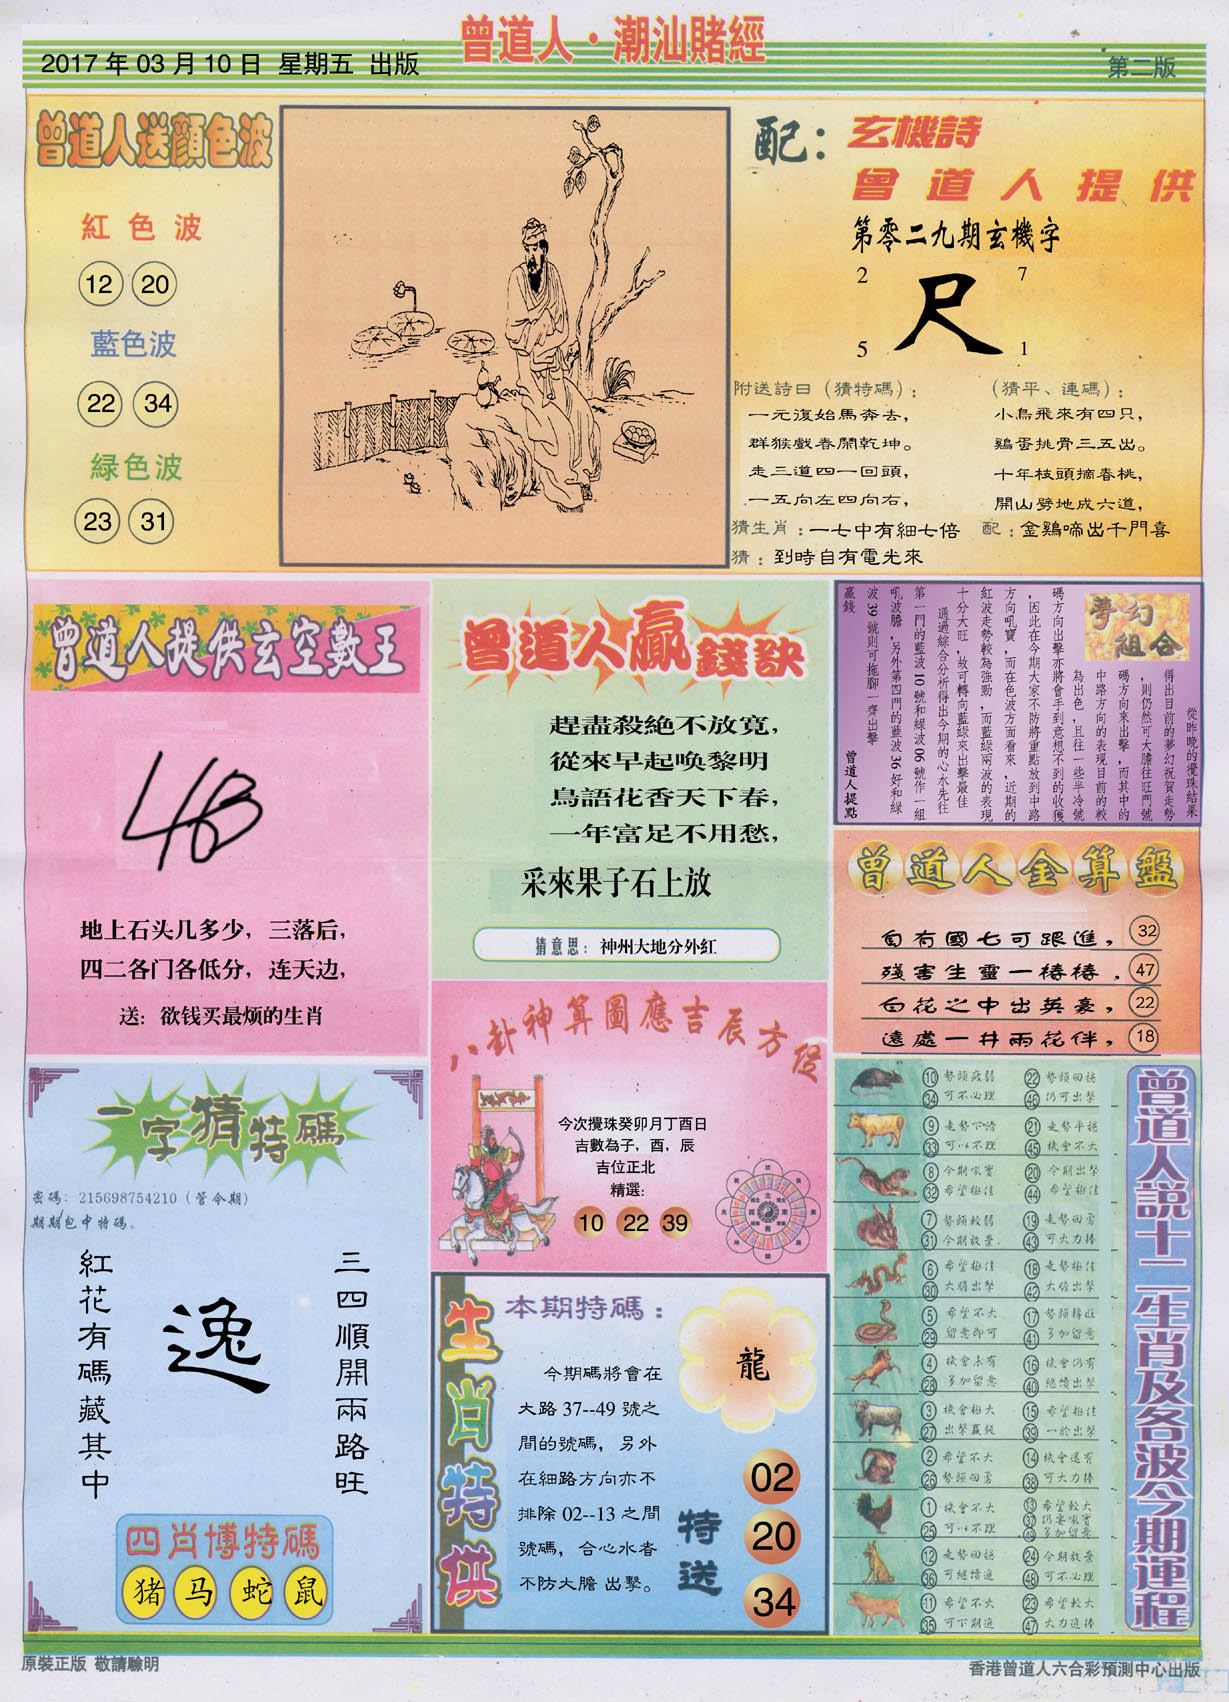 曾道人·潮汕賭經
2017 年 03 月 10 日 星期五 出版
第二版
曾道人送顏色波
紅色波
12 20
藍色波
22 34
緑色波
23 31
配：玄機詩
曾道人提供
第零二九期玄機字
2 7
尺
5 1
附送詩曰（猜特碼）：
一元復始馬奔去，
群猴戲春鬧乾坤。
走三道四一回頭，
一五向左四向右，
（猜平、連碼）：
小鳥飛來有四只，
鷄蛋挑骨三五出。
十年枝頭摘春桃，
開山劈地成六道，
猜生肖：一七中有細七倍
配：金鷄啼出千門喜
猜：到時自有電光來
曾道人提供玄空數王
地上石头几多少，三落后，
四二各门各低分，连天边，
送：欲钱买最烦的生肖
曾道人贏錢訣
趕盡殺絶不放寬，
從來早起喚黎明
鳥語花香天下春，
一年富足不用愁，
采來果子石上放
猜意思：神州大地分外紅
夢幻組合
從昨晚的攪珠結果
得出目前的夢幻祝賀走勢
，則仍然可大膽往旺門號
碼方向來出擊，而其中的
中路方向的表現目前的較
為出色，且往一些半冷號
碼方向出擊亦將會手到意想不到的收獲
，因此在今期大家不防將重點放到中路
方向吼寶，而在色波方面看來，近期的
紅波走勢較為強勁，而藍綠兩波的表現
十分大旺，故可轉向藍綠來出擊最佳
通過綜合分析得出今期的心水先往
第一門的藍波 10 號和綠波 06 號作一組
吼波膽，另外第四門的藍波 36 好和綠
波 39 號則可拖腳一齊出擊
贏錢
曾道人提點
曾道人金算盤
自有國七可跟進， 32
殘害生靈一樁樁， 47
百花之中出英豪， 22
遠處一井兩花伴， 18
八卦神算圖應吉辰方位
今次攪珠癸卯月丁酉日
吉數為子，酉，辰
吉位正北
精選：
10 22 39
一字猜特碼
密碼：215698754210（管令期）
期期包中特碼。
紅花有碼藏其中
逸
三四順開兩路旺
四肖博特碼
猪 马 蛇 鼠
生肖特供
本期特碼：
龍
今期碼將會在
大路 37--49 號之
間的號碼，另外
在細路方向亦不
排除 02--13 之間
號碼，合心水者
不防大膽 出擊。
特送
02
20
34
曾道人説十二生肖及各波今期運程
10 勢頭疲弱 22 勢頭回穩
34 可不必理 46 仍可出擊
9 走勢下滑 21 走勢平穩
33 可以不理 45 機會不大
8 今期吼寶 20 今期出擊
32 希望極佳 44 希望極佳
7 勢頭較弱 19 走勢回勇
31 今期放棄 43 可大力捧
6 希望極佳 18 走勢極佳
30 大膽出擊 42 大膽出擊
5 希望不大 17 勢頭轉旺
29 留意即可 41 多加留意
4 機會未有 16 機會仍有
28 多加留意 40 繼續出擊
3 機會相大 15 希望極佳
27 出擊贏錢 39 一於出擊
2 希望不大 14 機會還有
26 勢頭回勇 38 可大力捧
1 機會不大 13 希望較大
25 可以不理 37 仍要吼寶
49 多加留意
12 走勢回穩 24 今期放棄
36 可繼續追 48 可不必理
11 希望不大 23 希望較大
35 可下期追 47 大力追捧
原裝正版 敬請驗明
香港曾道人六合彩預測中心出版